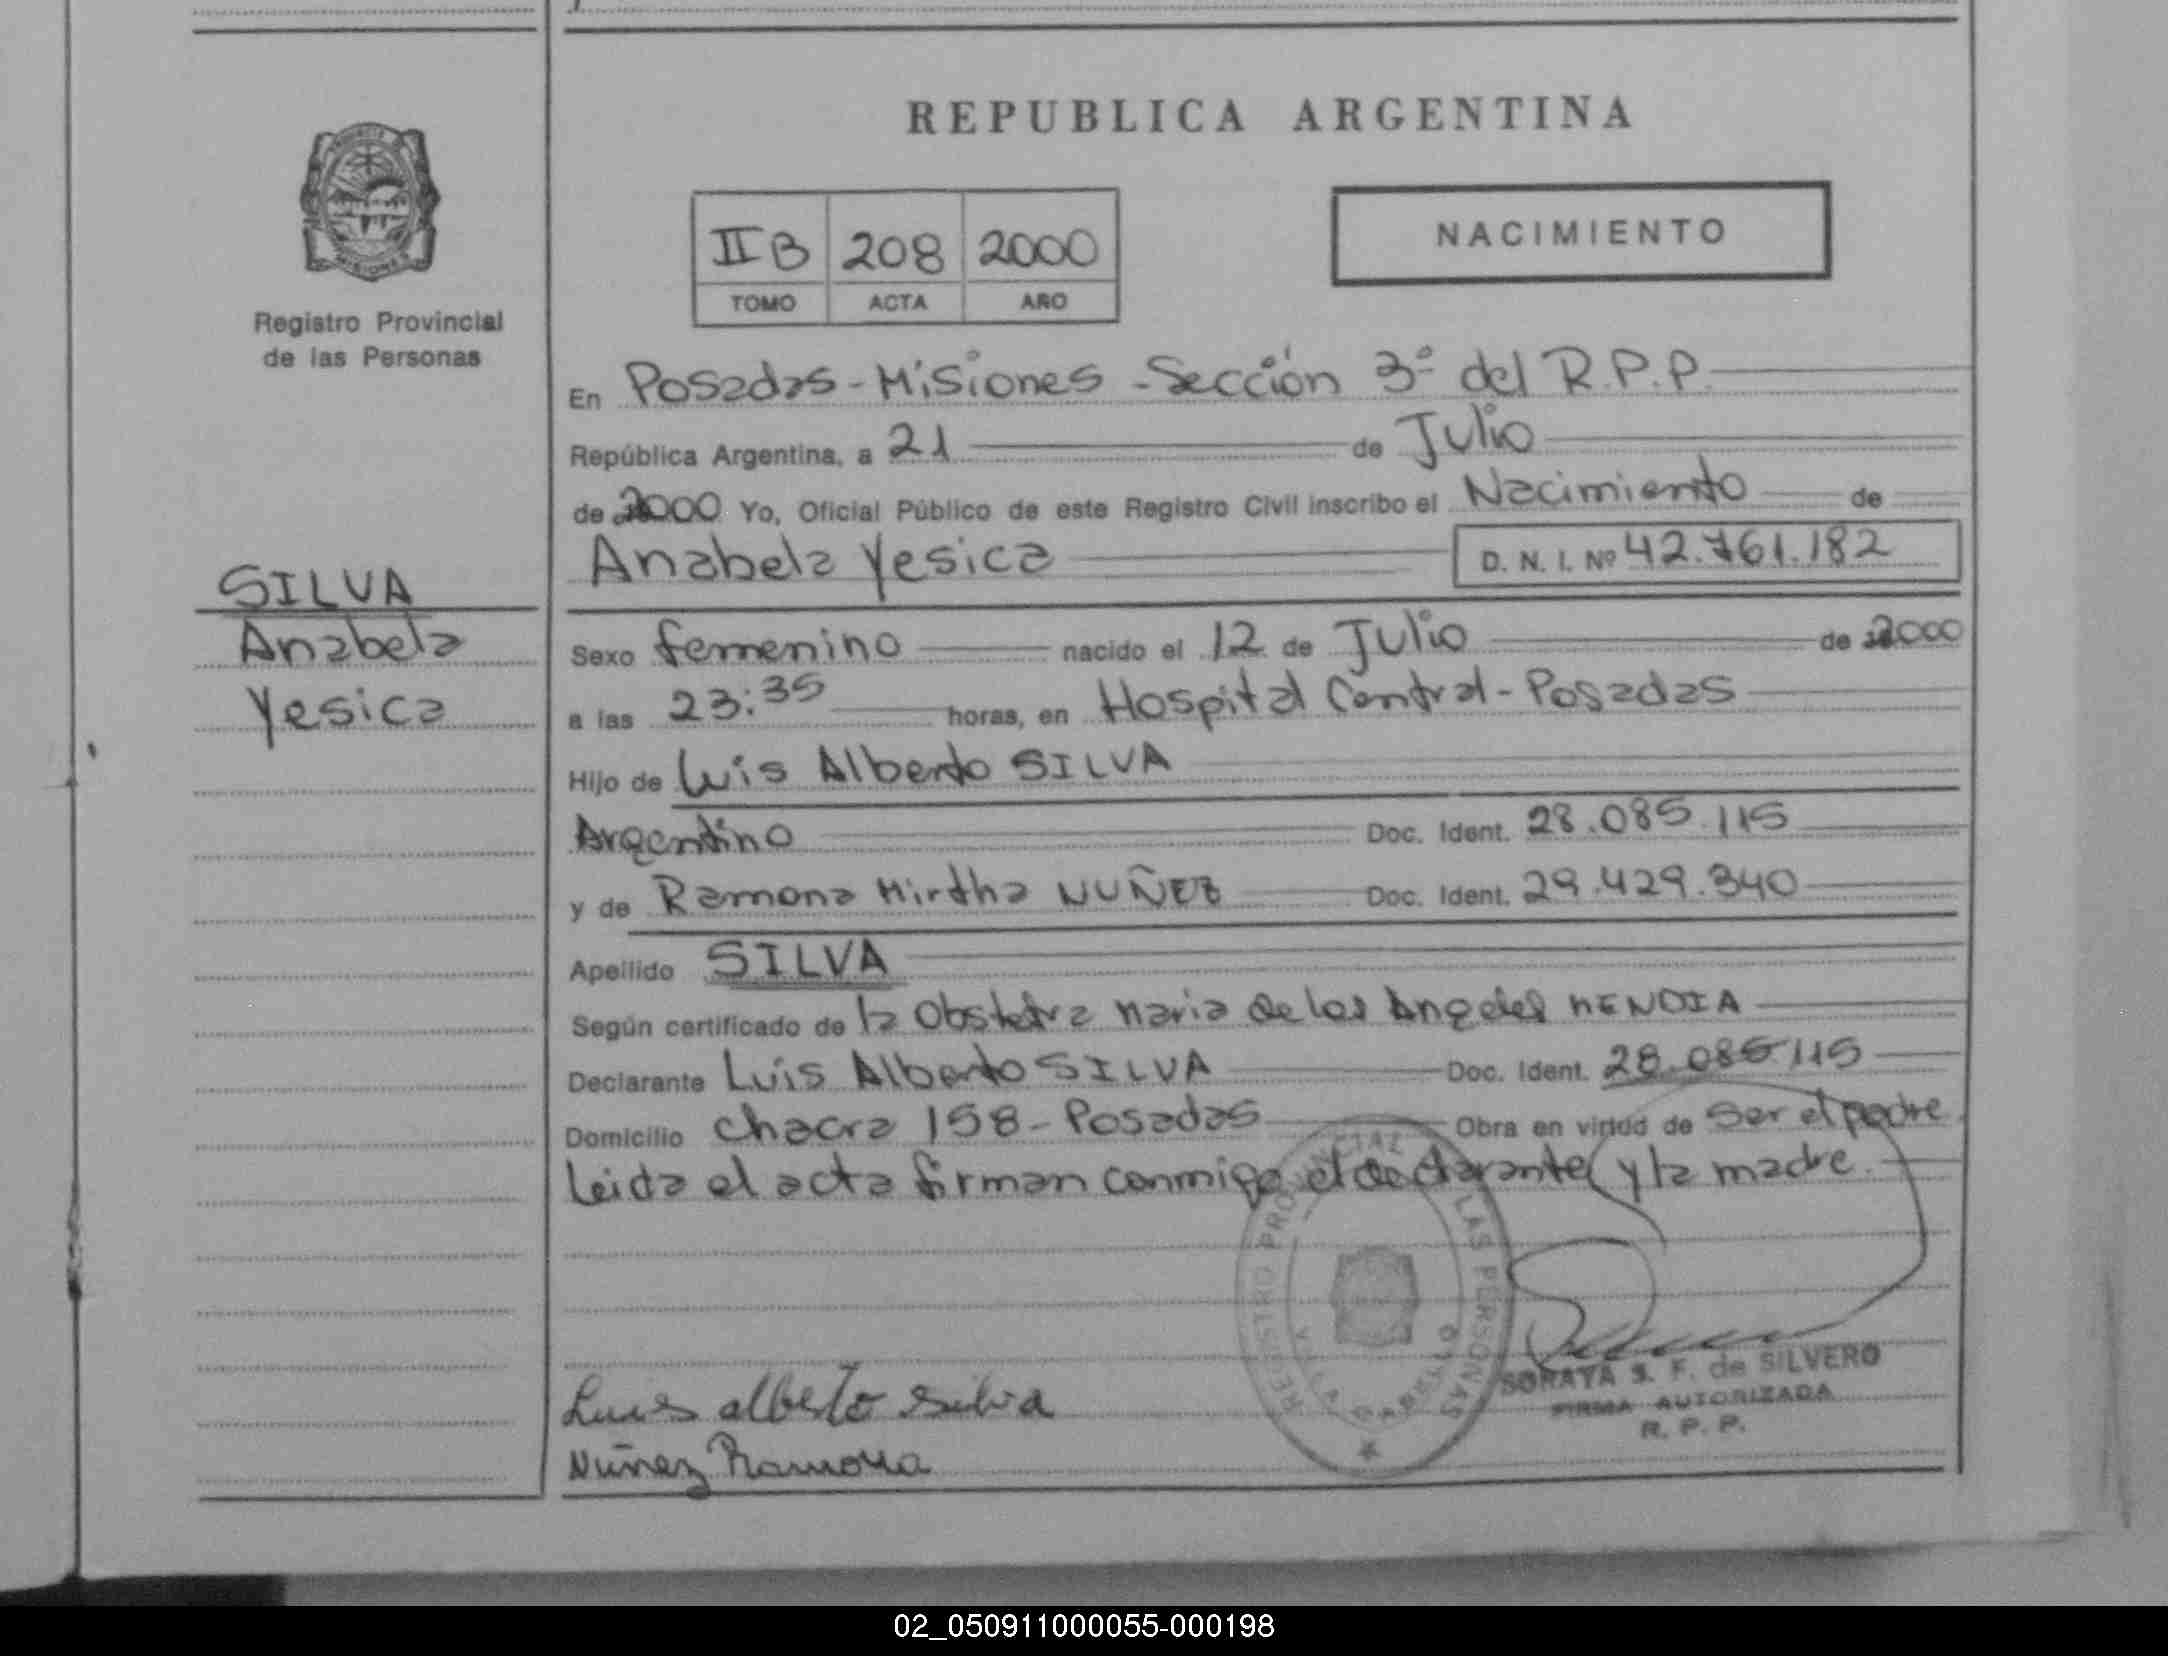 REPUBLICA ARGENTINA
PROVINCIA DE
MISIONES
Registro Provincial
de las Personas
II B 208 2000
TOMO ACTA AÑO
NACIMIENTO
En Posadas - Misiones - Sección 3º del R.P.P.
República Argentina, a 21 de Julio
de 2000 Yo, Oficial Público de este Registro Civil inscribo el Nacimiento de
Anabela Yesica D. N. I. Nº 42.761.182
SILVA
Anabela
Yesica
Sexo femenino nacido el 12 de Julio de 2000
a las 23:35 horas, en Hospital Central - Posadas
Hijo de Luis Alberto SILVA
Argentino Doc. Ident. 28.085.115
y de Ramona Mirtha NUÑEZ Doc. Ident. 29.429.340
Apellido SILVA
Según certificado de la Obstetra Maria de los Angeles MENDIA
Declarante Luis Alberto SILVA Doc. Ident. 28.085.115
Domicilio chacra 158 - Posadas Obra en virtud de Ser el padre
Leida el acta firman conmigo el declarante y la madre.
REGISTRO PROVINCIAL LAS PERSONAS
Luis alberto silva
Nuñez Ramona
SORAYA S. F. de SILVERO
FIRMA AUTORIZADA
R. P. P.
02_050911000055-000198